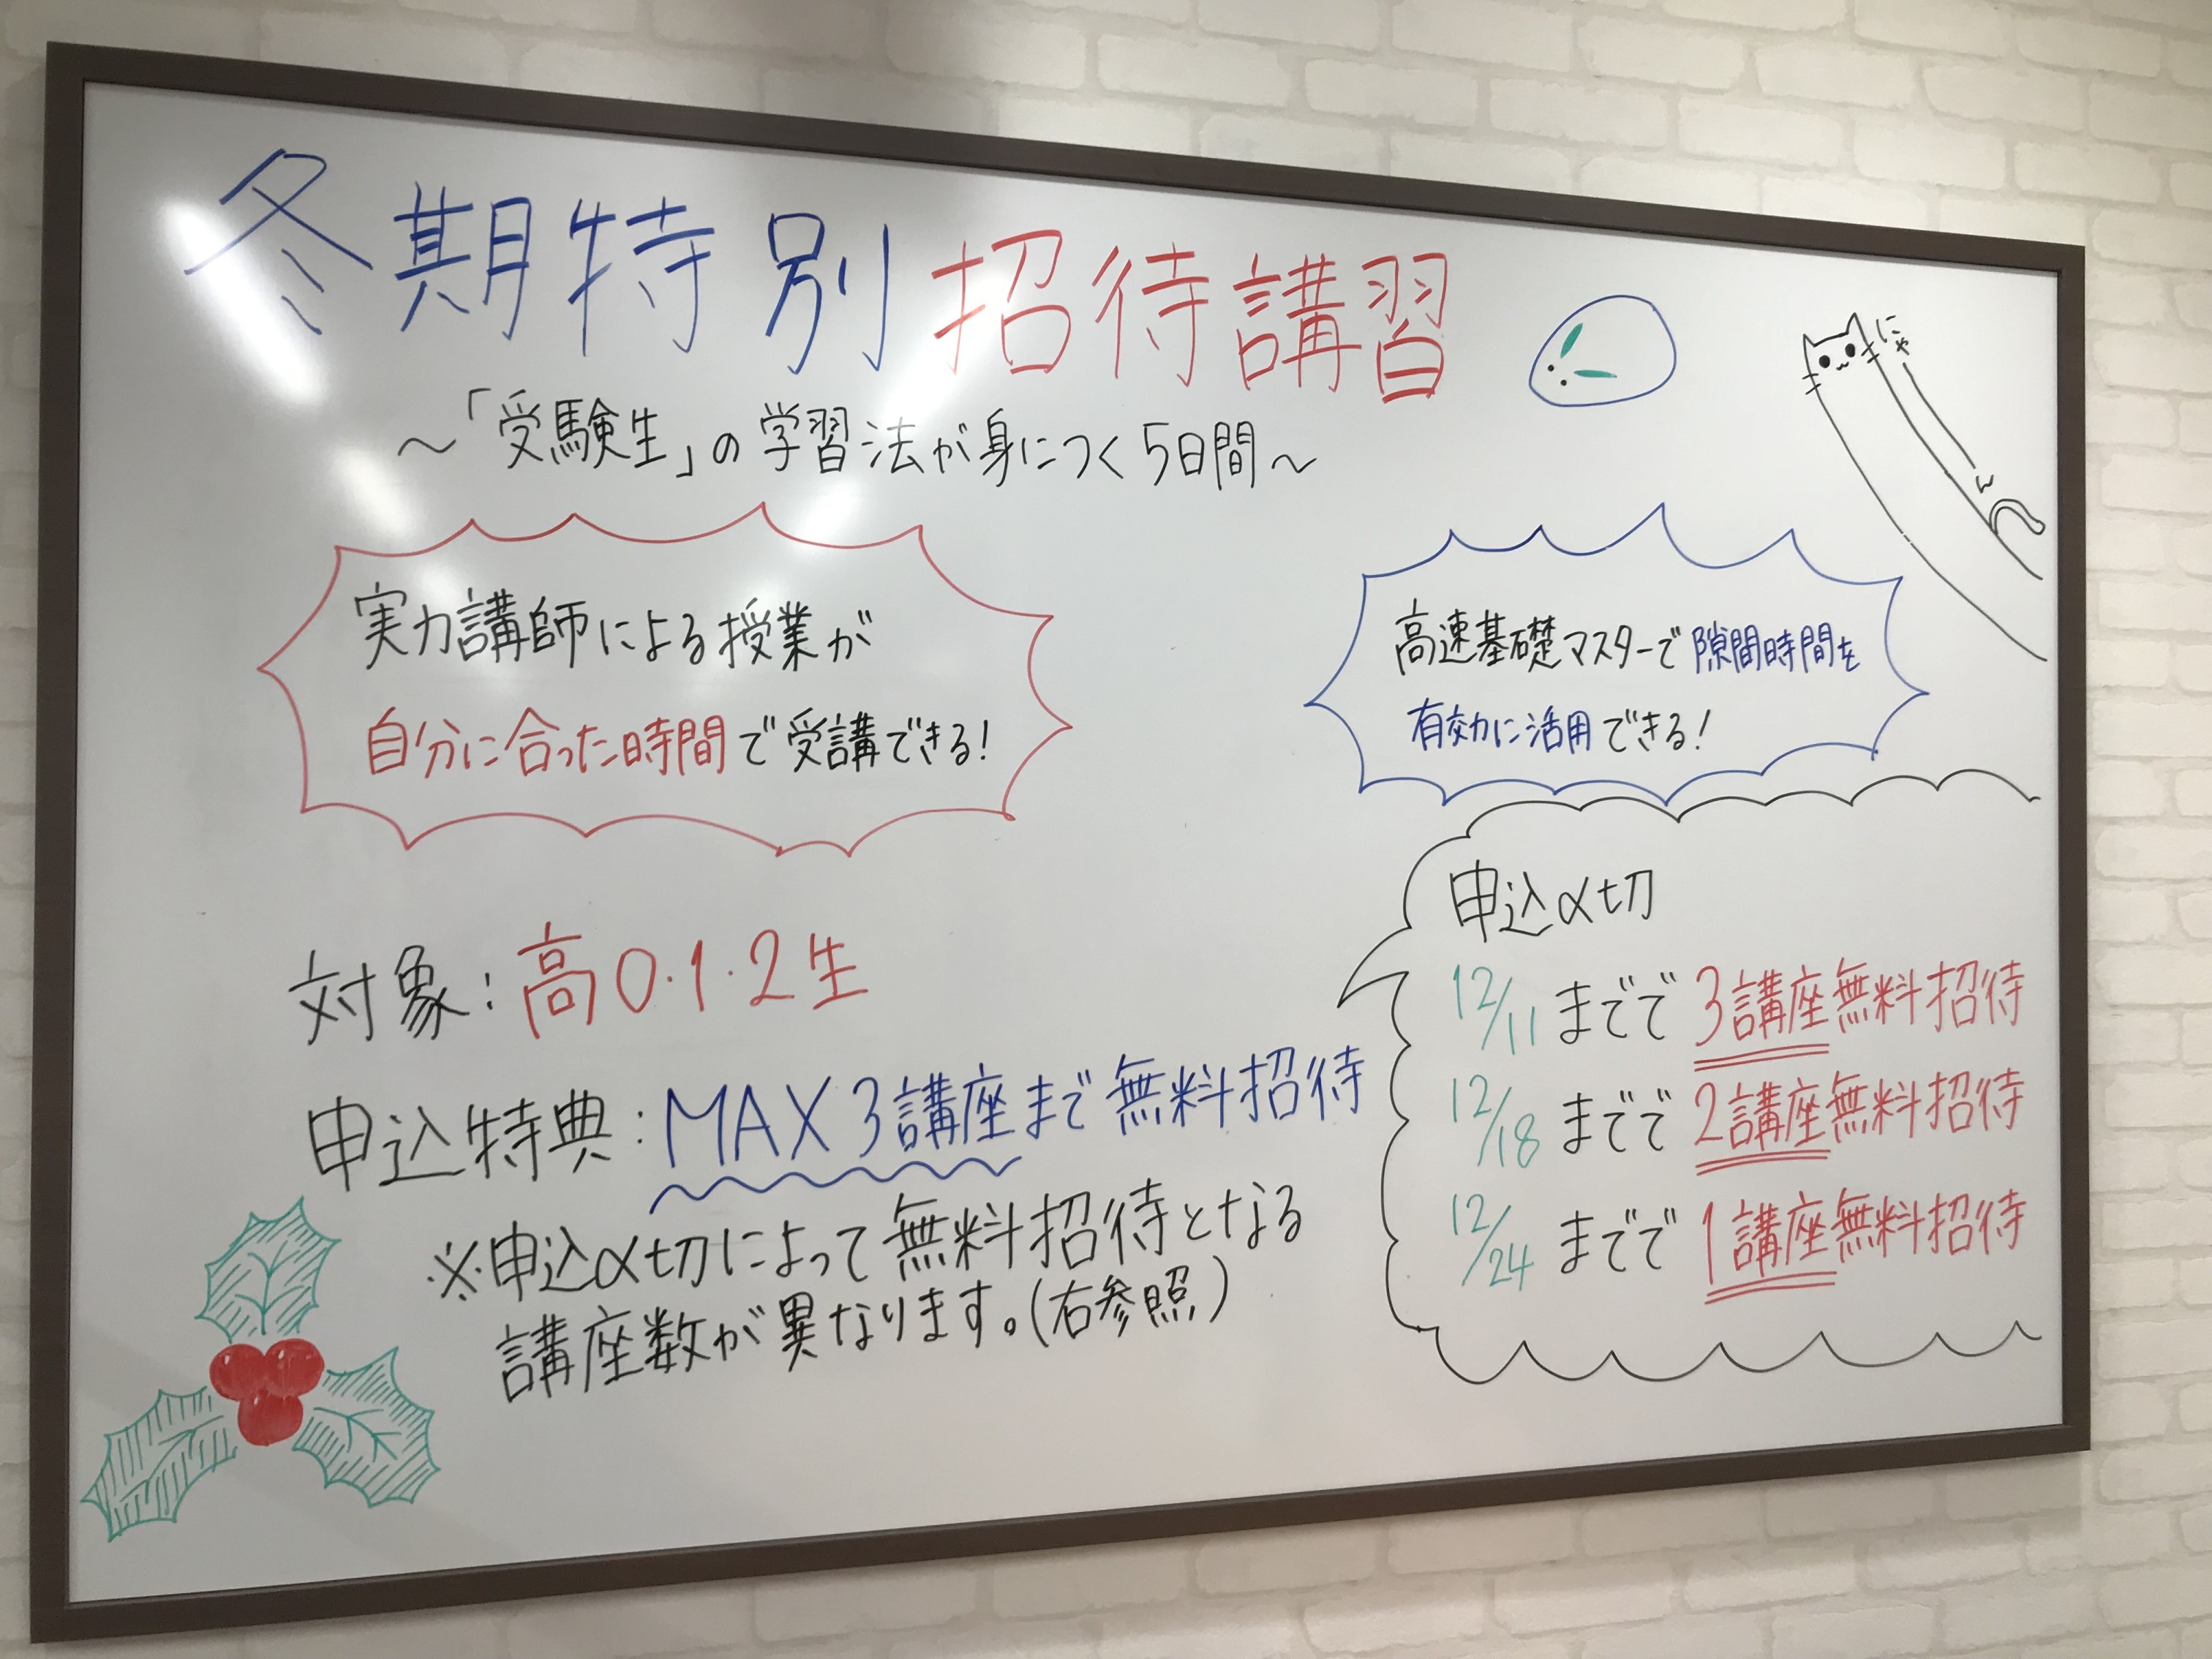 冬期特別招待講習
～「受験生」の学習法が身につく5日間～
にゃーん
実力講師による授業が
自分に合った時間で受講できる!
高速基礎マスターで隙間時間を
有効に活用できる!
対象:高0・1・2生
申込特典:MAX3講座まで無料招待
※申込〆切によって無料招待となる
講座数が異なります。(右参照)
申込〆切
12/11までで3講座無料招待
12/18までで2講座無料招待
12/24までで1講座無料招待